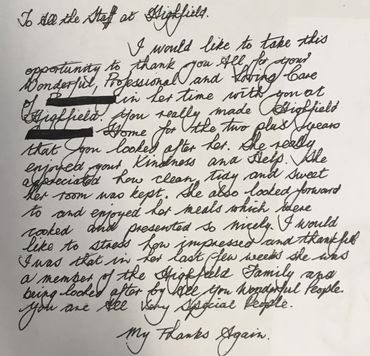 To All the Staff at Highfield.
I would like to take this
opportunity to thank you All for your
Wonderful, Professional and Loving Care
of in her time with you at
Highfield. You really made Highfield
Home for the two plus years
that you looked after her. She really
enjoyed your Kindness and Help. She
appreciated how clean, tidy and sweet
her room was kept. She also looked forward
to and enjoyed her meals which were
cooked and presented so nicely. I would
like to stress how impressed and thankful
I was that in her last few weeks she was
a member of the Highfield Family and
being looked after by All you Wonderful People.
You are All Very Special People.
My Thanks Again.